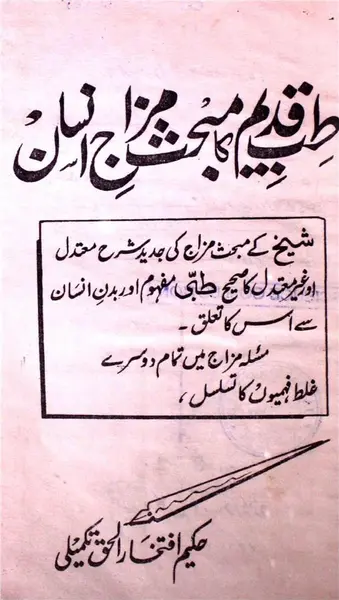 طبِ قدیم کا مبحثِ مزاجِ انسان
شیخ کے مبحث مزاج کی جدید شرح معتدل
اور غیر معتدل کا صحیح طبّی مفہوم اور بدنِ انسان
سے اس کا تعلق ۔
مسئلہ مزاج میں تمام دوسرے
غلط فہمیوں کا تسلسل ،
حکیم افتخار الحق تکمیلی